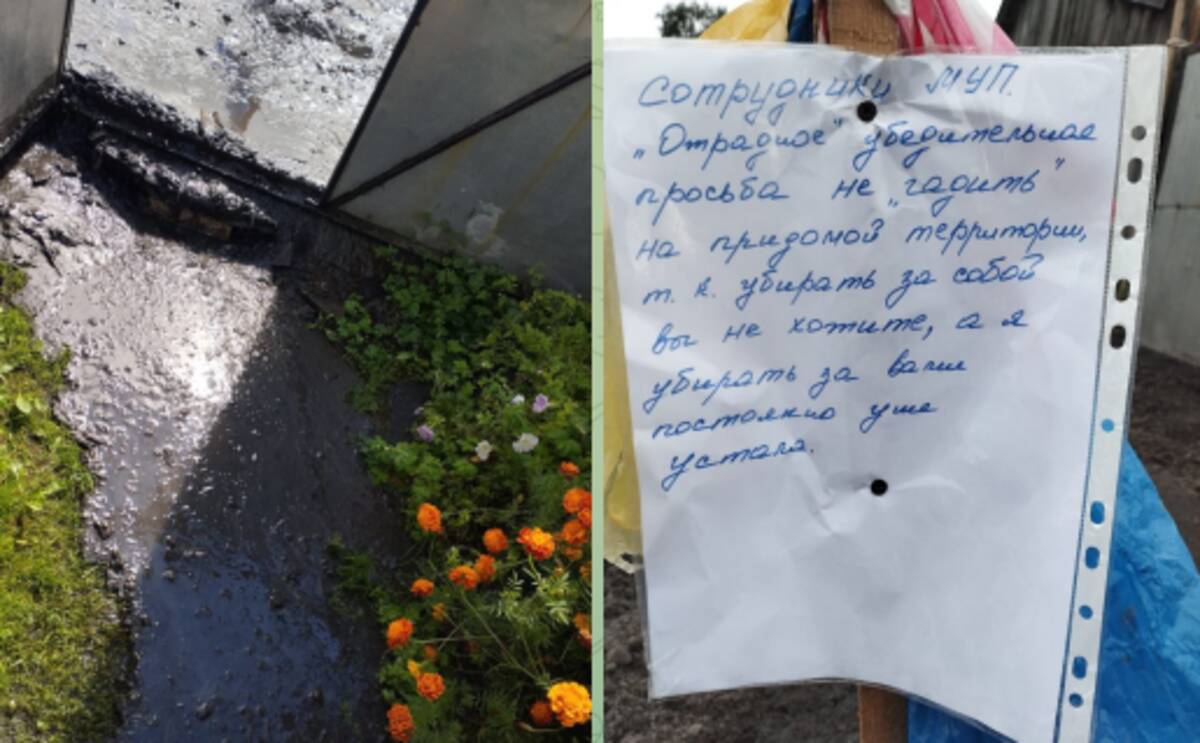 Сотрудники МУП.
„Отрадное" убедительная
просьба не „гадить"
на придомой территории,
т. к. убирать за собой
вы не хотите, а я
убирать за вами
постоянно уже
устала.